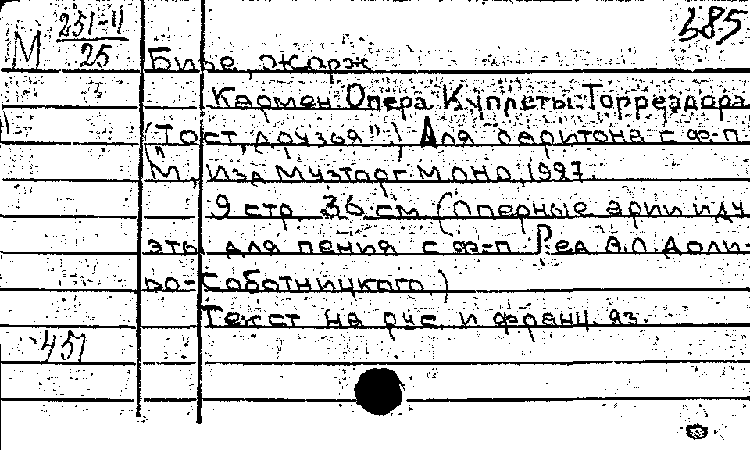 M 251-11 / 25
685
Бизе, Жорж
Кармен. Опера. Куплеты Торреадора
("Тост, друзья".) Для баритона с ф-п.
М., Изд. Музторг МОНО, 1927.
9 стр. 36 см (Оперные арии и ду
эты для пения с ф-п. Ред. А.Л. Доли
во-Соботницкого.)
Текст на рус. и франц. яз.
451